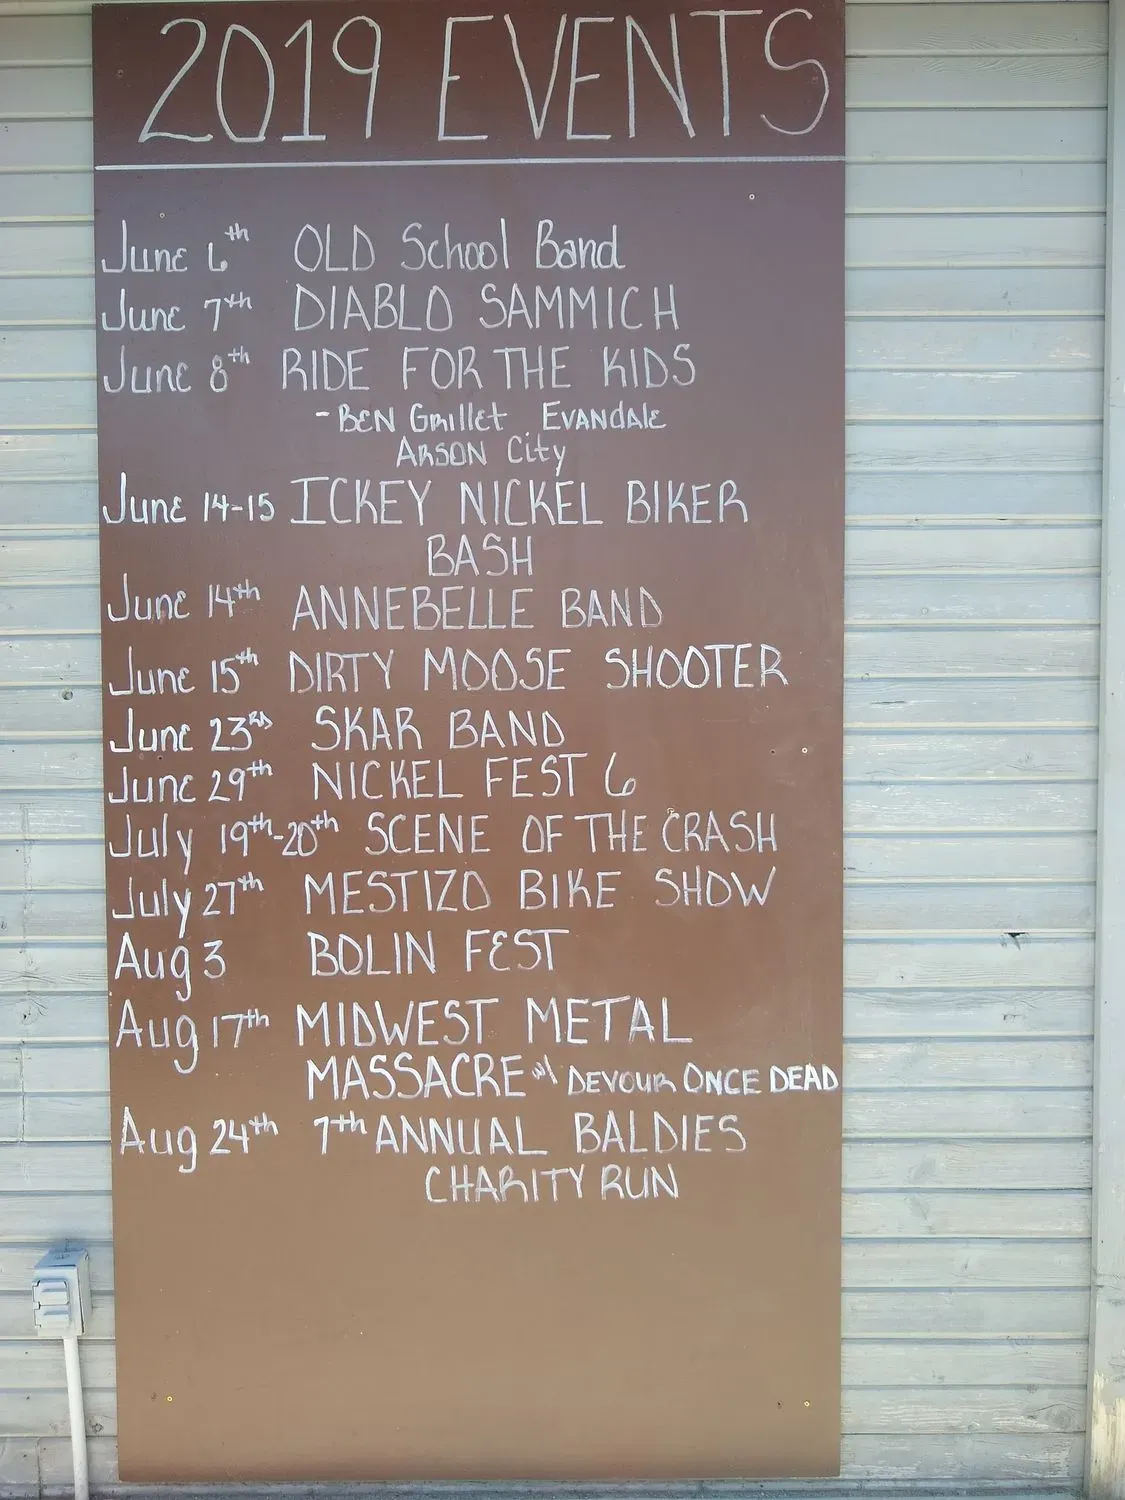 2019 EVENTS
June 6th OLD School Band
June 7th DIABLO SAMMICH
June 8th RIDE FOR THE KIDS
- BEN Grillet EVANDALE
ARSON City
June 14-15 ICKEY NICKEL BIKER
BASH
June 14th ANNEBELLE BAND
June 15th DIRTY MOOSE SHOOTER
June 23RD SKAR BAND
June 29th NICKEL FEST 6
July 19th-20th SCENE OF THE CRASH
July 27th MESTIZO BIKE SHOW
Aug 3 BOLIN FEST
Aug 17th MIDWEST METAL
MASSACRE w/ DEVOUR ONCE DEAD
Aug 24th 7th ANNUAL BALDIES
CHARITY RUN